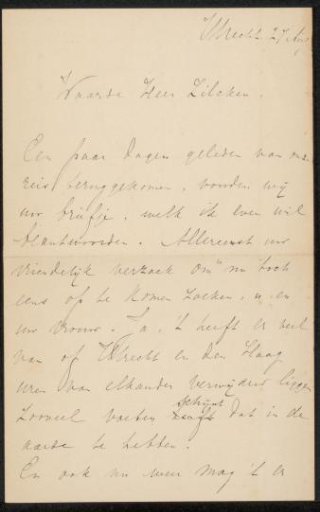 Utrecht 27 Aug
Waarde Heer Zilcken.
Een paar dagen geleden van onze
reis teruggekomen, vonden wij
uw briefje, welk ik even wil
beantwoorden. Allereerst uw
vriendelijk verzoek om nu toch
eens op te komen zoeken, u en
uw vrouw. Ja, 't heeft er veel
van of Utrecht en den Haag
uren van elkander verwijderd liggen
zooveel voeten schijnt dat in de
aarde te hebben.
En ook nu weer mag 't er